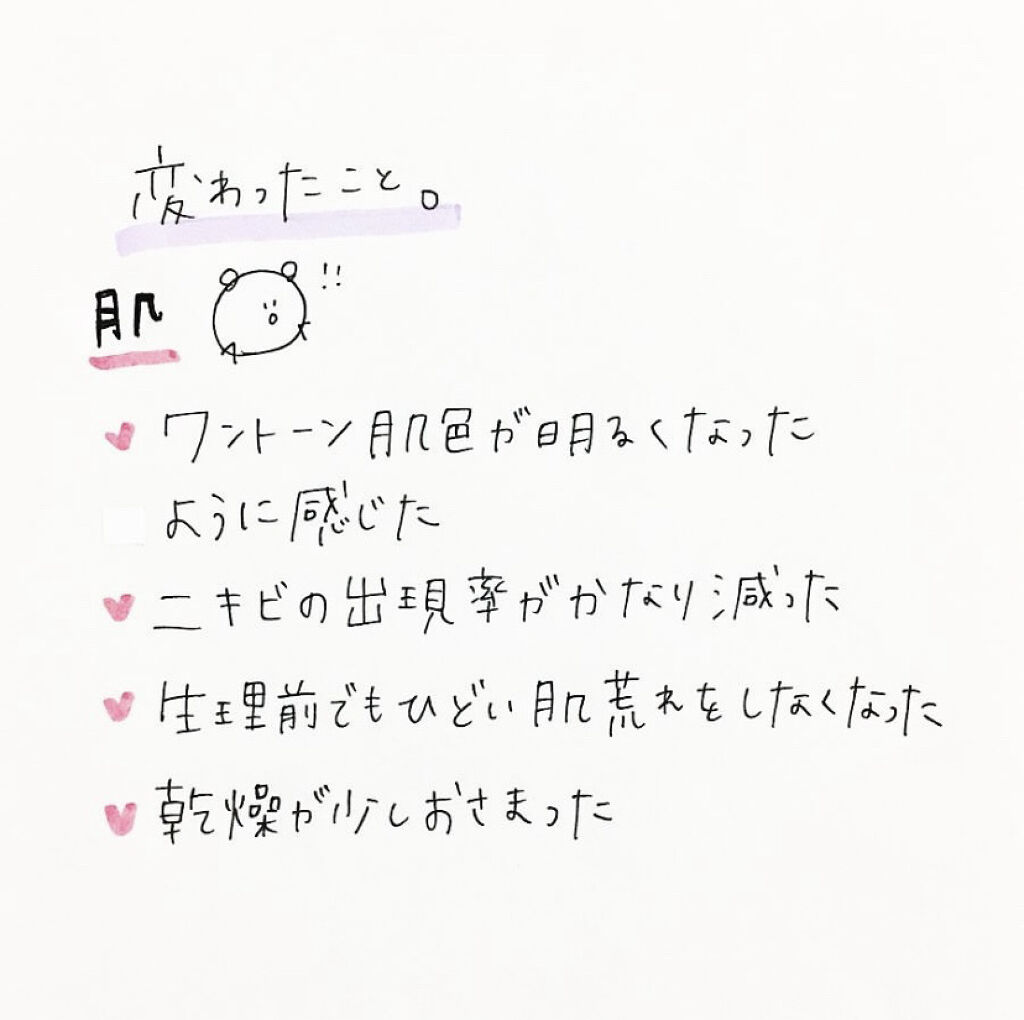 変わったこと。
肌 !!
ワントーン肌色が明るくなった
ように感じた
ニキビの出現率がかなり減った
生理前でもひどい肌荒れをしなくなった
乾燥が少しおさまった